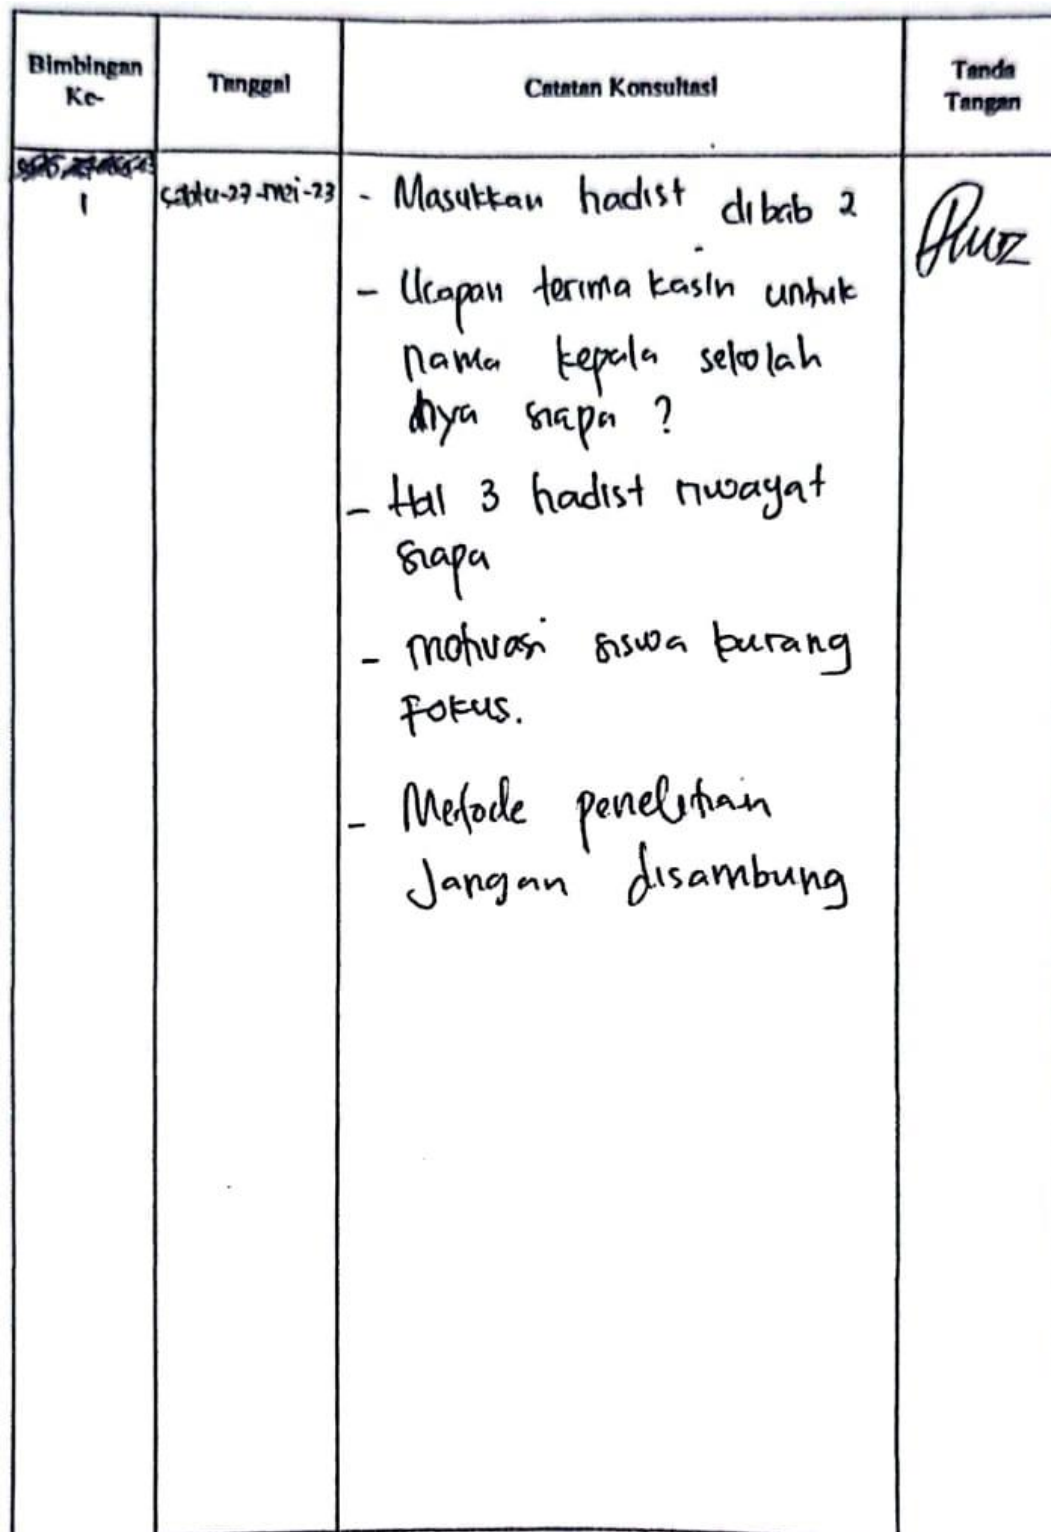 Bimbingan Ke-
Tanggal
Catatan Konsultasi
Tanda Tangan
1
Sabtu-27-Mei-23
- Masukkan hadist dibab 2
- Ucapan terima kasih untuk
nama kepala sekolah
nya siapa ?
- Hal 3 hadist riwayat
siapa
- motivasi siswa kurang
Fokus.
- Metode penelitian
Jangan disambung